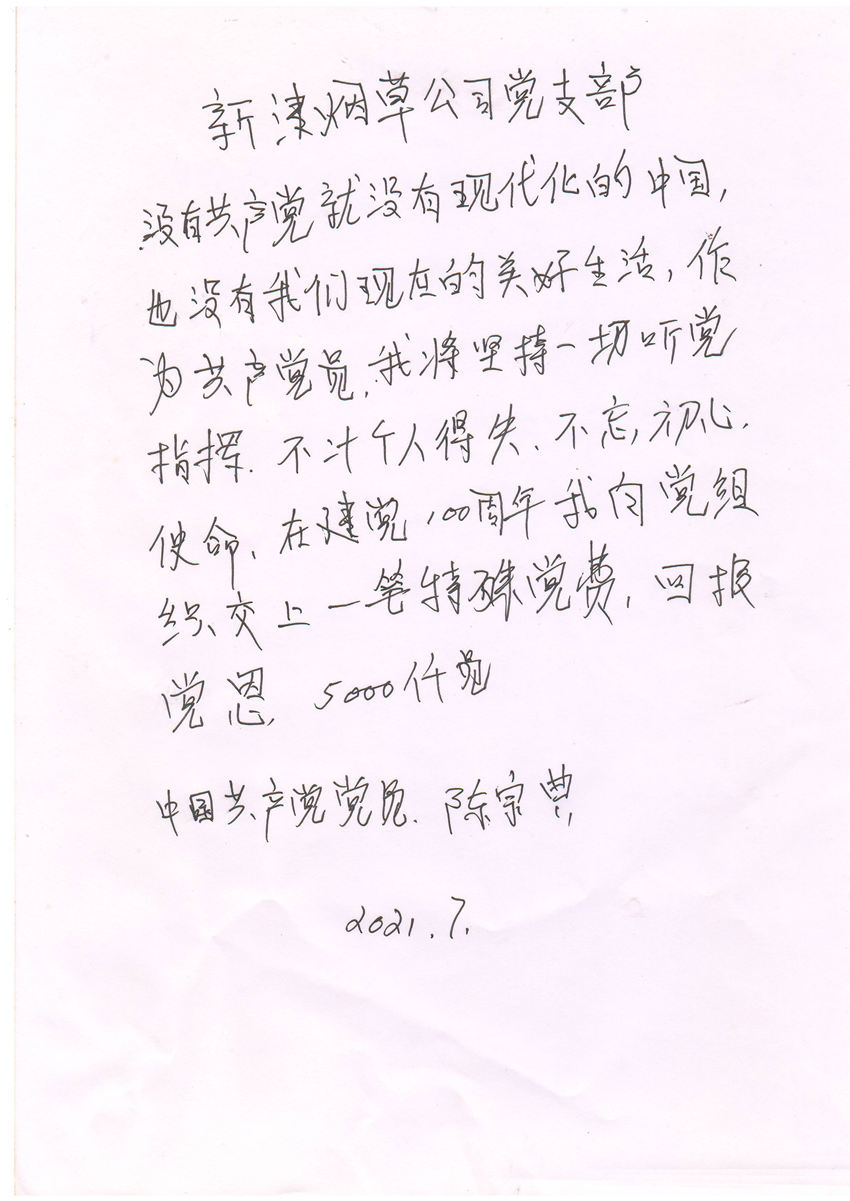 新津烟草公司党支部
没有共产党就没有现代化的中国,
也没有我们现在的美好生活,作
为共产党员,我将坚持一切听党
指挥.不计个人得失、不忘初心.
使命、在建党100周年我向党组
织交上一笔特殊党费,回报
党恩, 5000仟员
中国共产党党员. 陈宗
2021.7.